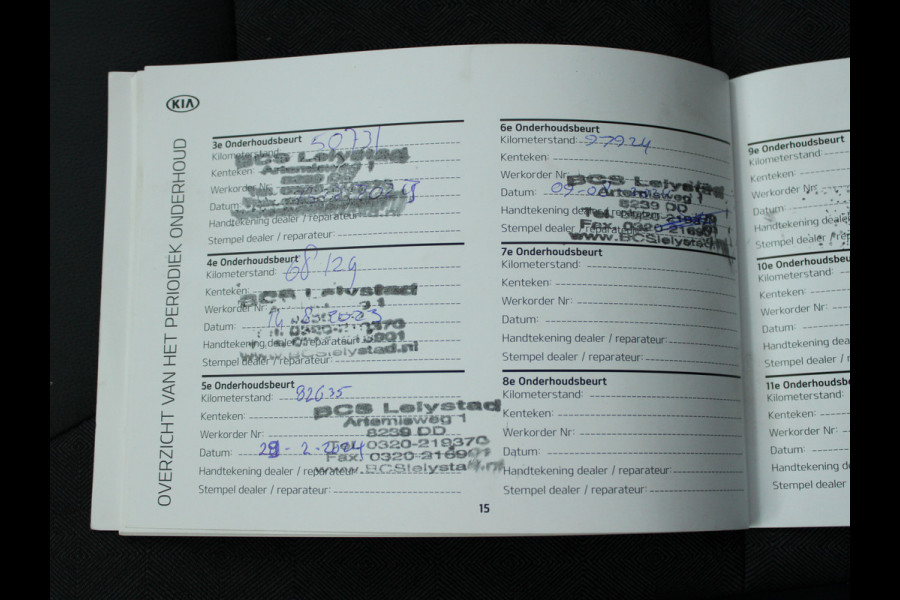 KIA
OVERZICHT VAN HET PERIODIEK ONDERHOUD
3e Onderhoudsbeurt
Kilometerstand: 50731
Kenteken:
Werkorder Nr:
Datum:
Handtekening dealer / reparateur:
Stempel dealer / reparateur:
BCS Lelystad
Artemisweg 1
8239
4e Onderhoudsbeurt
Kilometerstand: 68129
Kenteken:
Werkorder Nr:
Datum: 14 8 2023
Handtekening dealer / reparateur:
Stempel dealer / reparateur:
BCS Lelystad
www.BCSlelystad.nl
5e Onderhoudsbeurt
Kilometerstand: 82635
Kenteken:
Werkorder Nr:
Datum: 29-2-2024
Handtekening dealer / reparateur:
Stempel dealer / reparateur:
BCS Lelystad
Artemisweg 1
8239 DD
Tel. 0320-219370
Fax. 0320-216901
www.BCSlelystad.nl
6e Onderhoudsbeurt
Kilometerstand: 97924
Kenteken:
Werkorder Nr:
Datum:
Handtekening dealer / reparateur:
Stempel dealer / reparateur:
BCS Lelystad
Artemisweg 1
8239 DD
Tel. 0320-219370
Fax. 0320-216901
www.BCSlelystad.nl
7e Onderhoudsbeurt
Kilometerstand:
Kenteken:
Werkorder Nr:
Datum:
Handtekening dealer / reparateur:
Stempel dealer / reparateur:
8e Onderhoudsbeurt
Kilometerstand:
Kenteken:
Werkorder Nr:
Datum:
Handtekening dealer / reparateur:
Stempel dealer / reparateur:
15
9e Onderhoudsbeurt
Kilometerstand:
Kenteken:
Werkorder Nr:
Datum:
Handtekening deale
Stempel dealer / re
10e Onderhoudsbe
Kilometerstand:
Kenteken:
Werkorder Nr:
Datum:
Handtekening dea
Stempel dealer / r
11e Onderhoudsb
Kilometerstand:
Kenteken:
Werkorder Nr:
Datum:
Handtekening dea
Stempel dealer